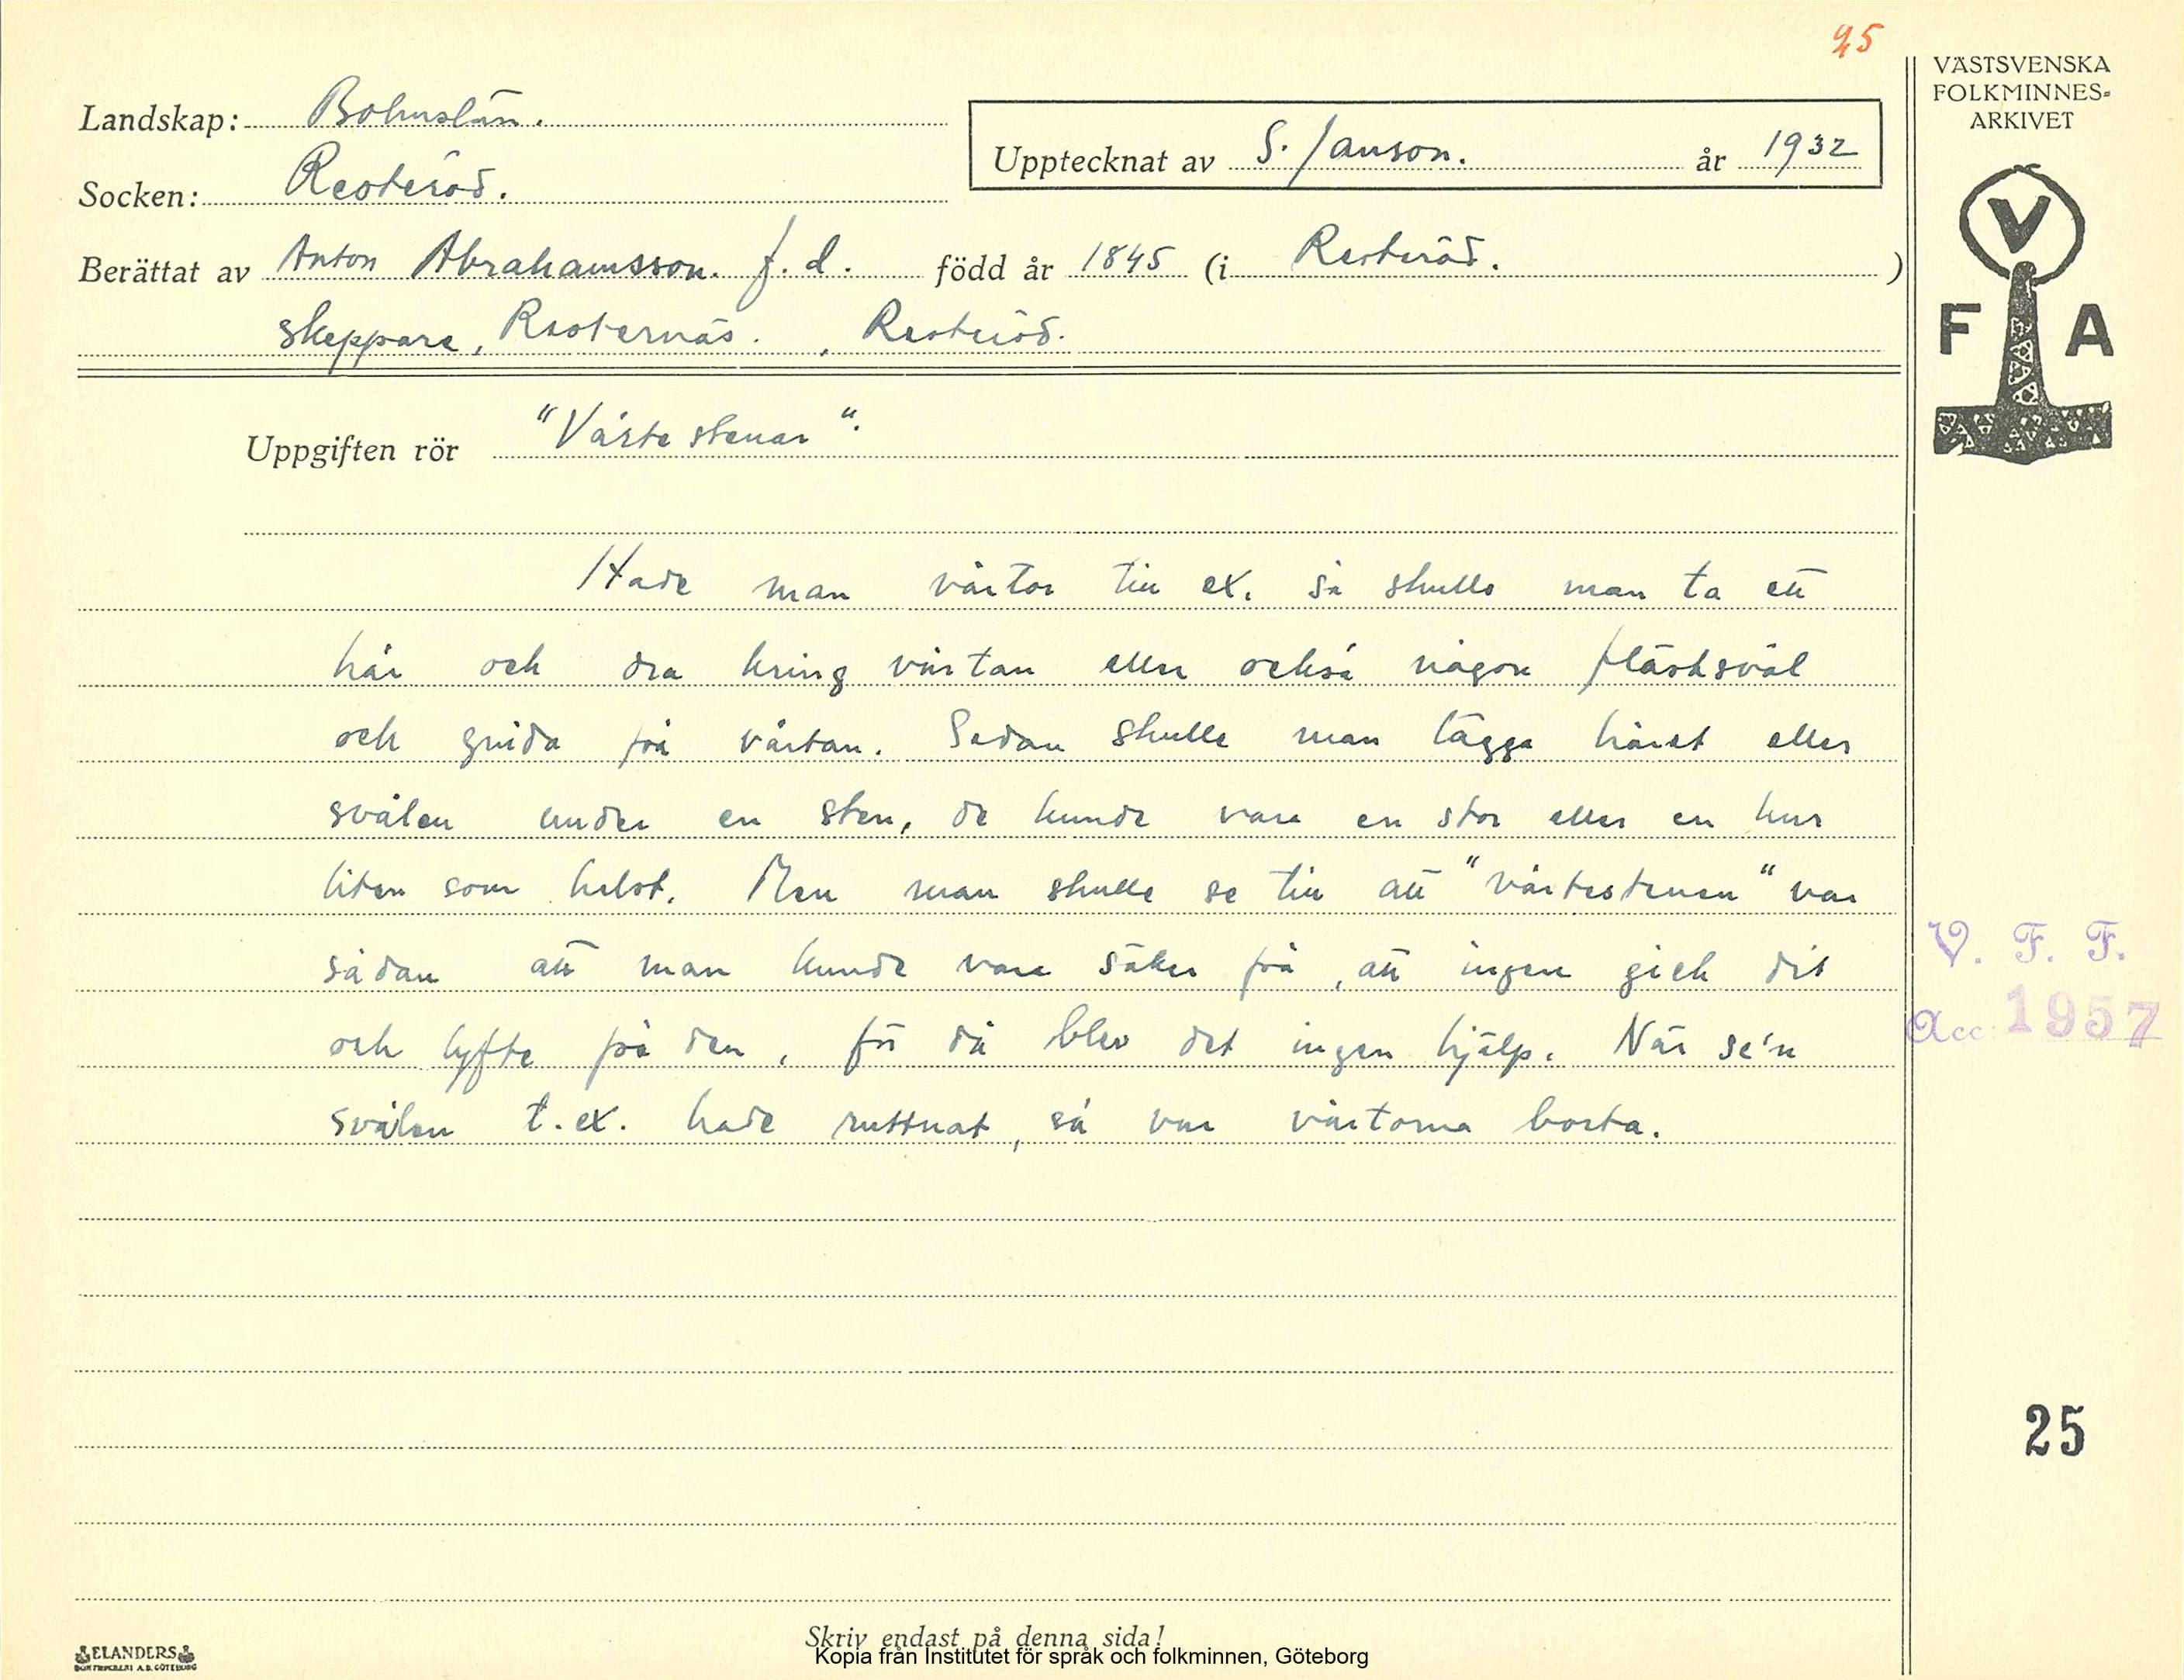 25
VÄSTSVENSKA
FOLKMINNES-
ARKIVET
Landskap: Bohuslän.
Upptecknat av S. Janson. år 1932
Socken: Resteröd.
Berättat av Anton Abrahamsson. f. d. född år 1845 (i Resteröd. )
skeppare, Resternäs. , Resteröd.
V
F A
Uppgiften rör "Vårtestenar".
Hade man vårtor till ex. så skulle man ta ett
hår och dra kring vårtan eller också någon fläsksvål
och gnida på vårtan. Sedan skulle man lägga håret eller
svålen under en sten, de kunde vara en stor eller en hur
liten som helst. Men man skulle se till att "vårtestenen" var
sådan att man kunde vara säker på, att ingen gick dit
och lyfte på den, för då blev det ingen hjälp. När se'n
svålen t.ex. hade ruttnat, så var vårtorna borta.
V. F. F.
Acc. 1957
25
Skriv endast på denna sida!
Kopia från Institutet för språk och folkminnen, Göteborg
ELANDERS
BOKTRYCKERI A.B. GÖTEBORG